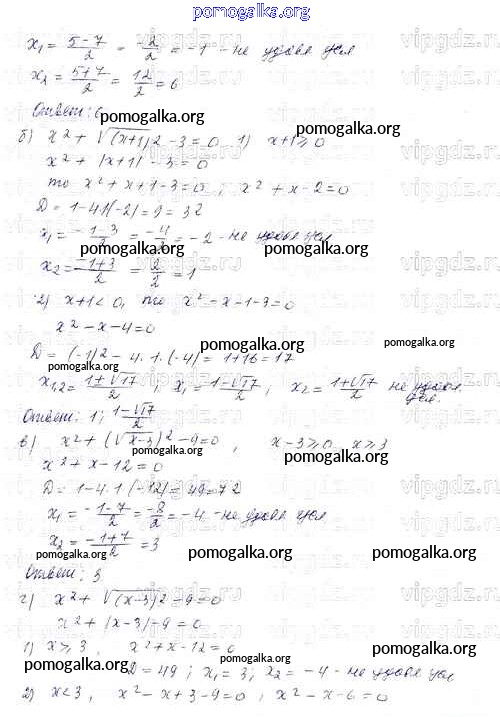 pomogalka.org
x₁ = (5-7)/2 = -2/2 = -1 - не удовл усл
x₂ = (5+7)/2 = 12/2 = 6
Ответ: 6
pomogalka.org
б) x² + √(x+1)² - 3 = 0 1) x+1 ≥ 0
x² + |x+1| - 3 = 0
то x² + x + 1 - 3 = 0 ; x² + x - 2 = 0
D = 1 - 4·1(-2) = 9 = 3²
x₁ = (-1-3)/2 = -4/2 = -2 - не удовл усл
pomogalka.org pomogalka.org
x₂ = (-1+3)/2 = 2/2 = 1
2) x+1 < 0, то x² - x - 1 - 3 = 0
x² - x - 4 = 0
pomogalka.org pomogalka.org
D = (-1)² - 4·1·(-4) = 1+16 = 17
x₁,₂ = (1±√17)/2 ; x₁ = (1-√17)/2 ; x₂ = (1+√17)/2 не удовл усл.
Ответ: 1; (1-√17)/2
pomogalka.org
в) x² + (√x-3)² - 9 = 0 , x-3 ≥ 0 x ≥ 3
pomogalka.org pomogalka.org
x² + x - 12 = 0
D = 1 - 4·1(-12) = 49 = 7²
x₁ = (-1-7)/2 = -8/2 = -4 - не удовл усл
x₂ = (-1+7)/2 = 3
pomogalka.org pomogalka.org
Ответ: 3
г) x² + √(x-3)² - 9 = 0
x² + |x-3| - 9 = 0
1) x ≥ 3, x² + x - 12 = 0
pomogalka.org pomogalka.org
D = 49 ; x₁ = 3; x₂ = -4 - не удовл усл
2) x < 3, x² - x + 3 - 9 = 0 ; x² - x - 6 = 0
pomogalka.org